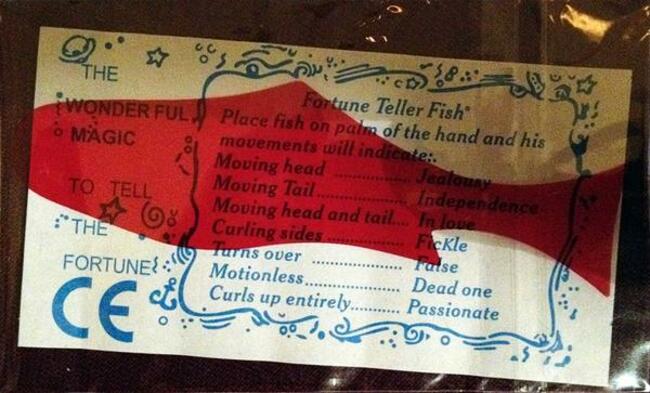 THE
WONDERFUL
MAGIC
TO TELL
THE
FORTUNE
CE
Fortune Teller Fish®
Place fish on palm of the hand and his
movements will indicate:.
Moving head ................ Jealousy
Moving Tail................... Independence
Moving head and tail.... In love
Curling sides ................. Fickle
Turns over ..................... False
Motionless...................... Dead one
Curls up entirely........... Passionate